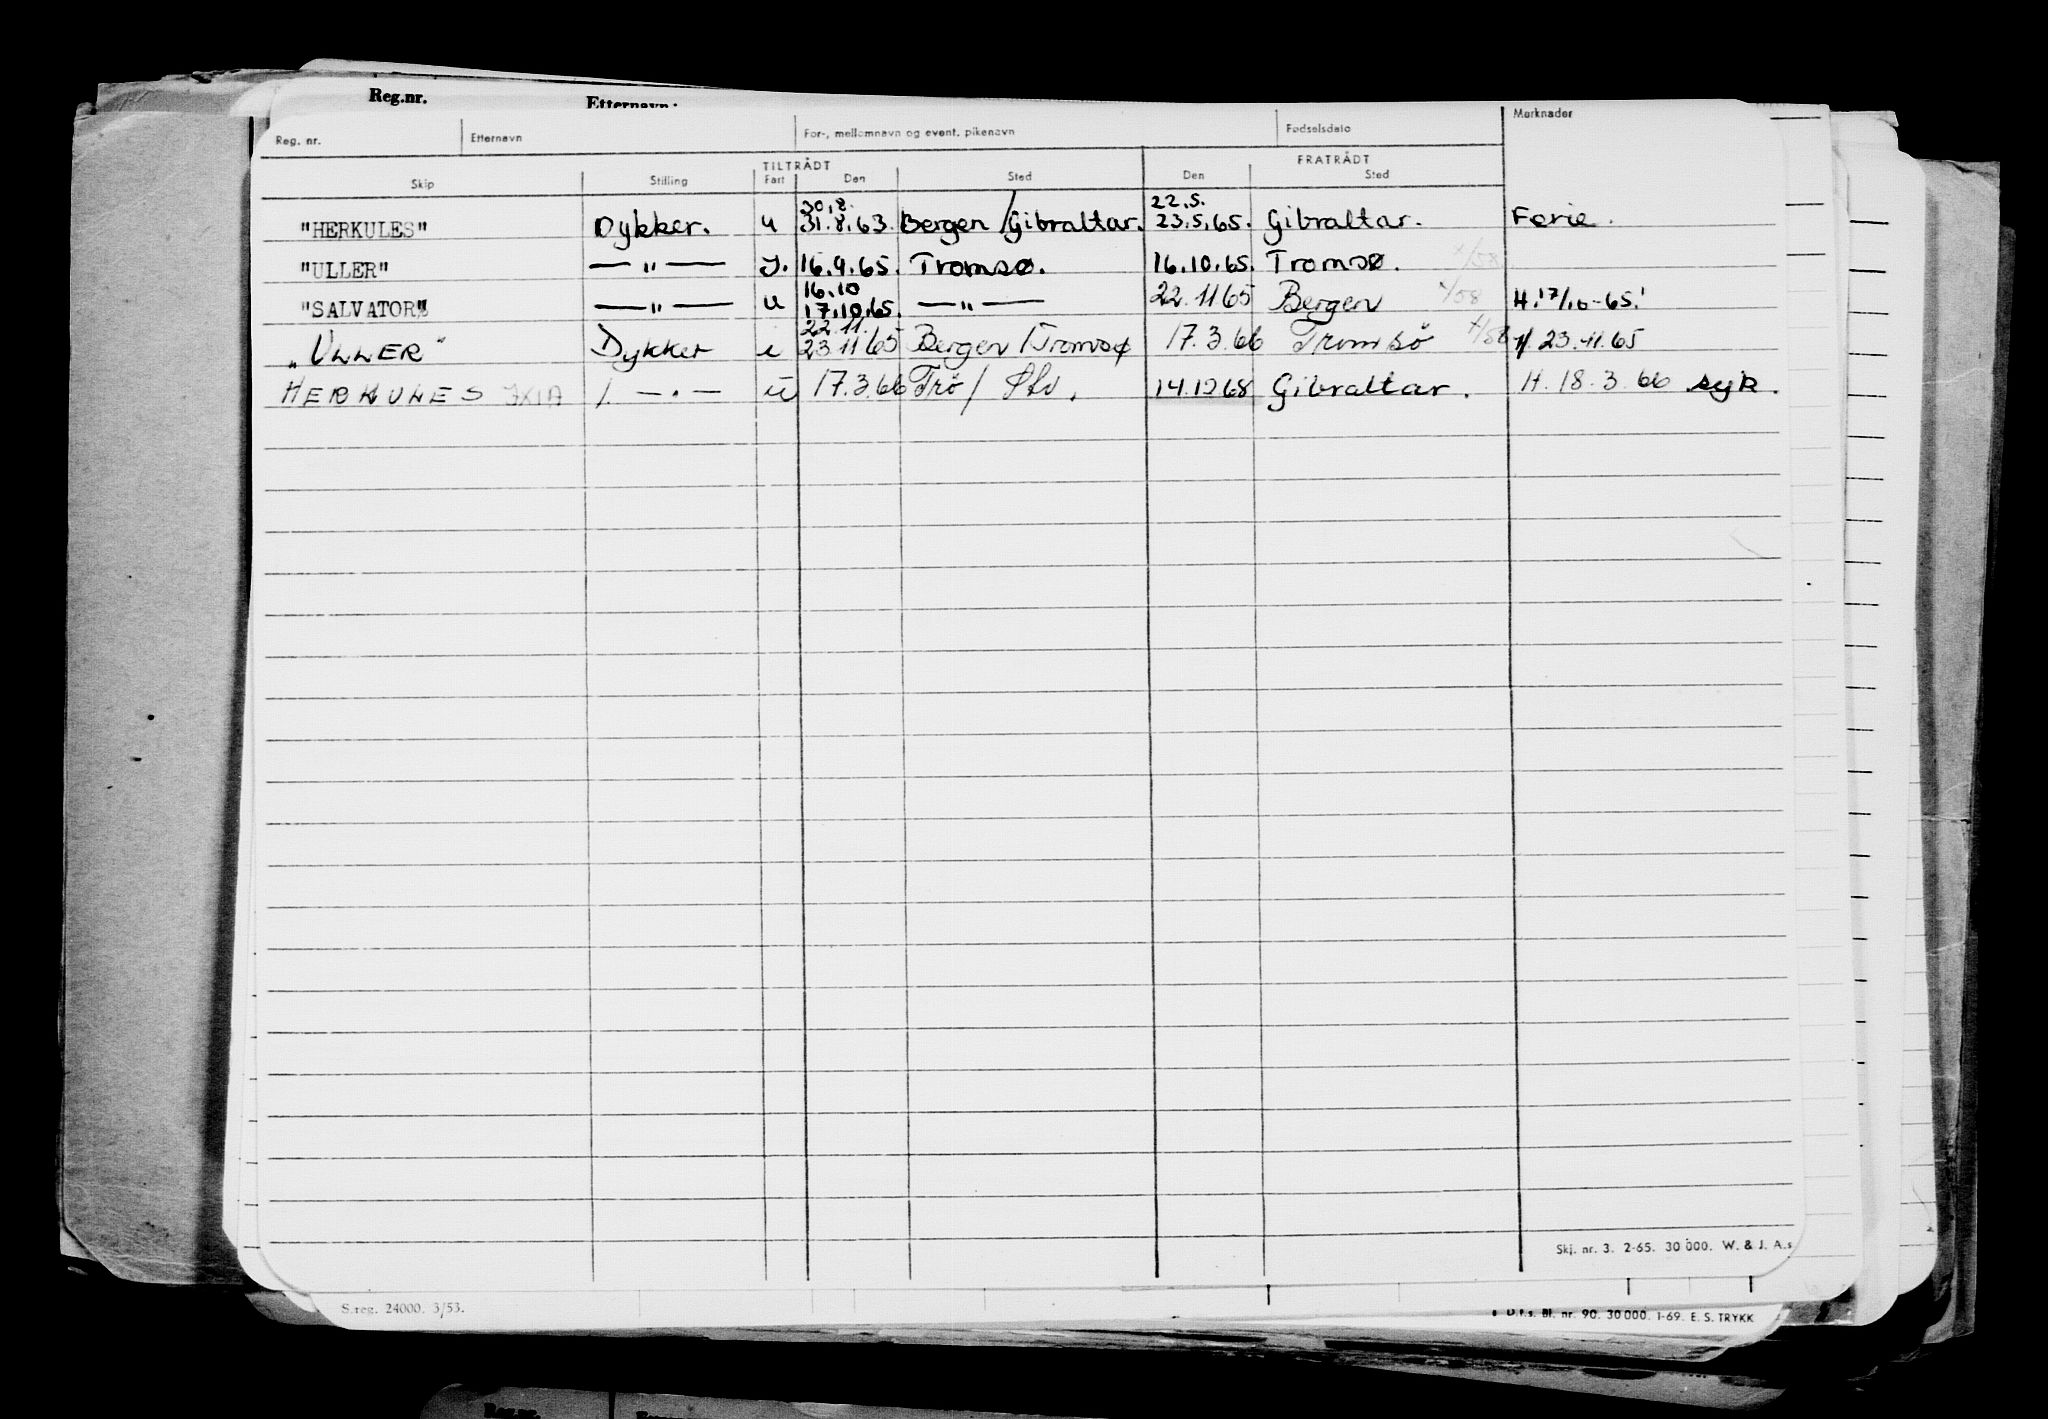 Reg.nr. Etternavn:
Reg. nr. Etternavn For-, mellomnavn og event. pikenavn Fødselsdato Merknader
TILTRÅDT FRATRÅDT
Skip Stilling Fart Den Sted Den Sted
30.8. 22.5.
"HERKULES" Dykker. u 31.8.63. Bergen/Gibraltar. 23.5.65. Gibraltar. Ferie.
"ULLER" —"— I. 16.9.65. Tromsø. 16.10.65. Tromsø. x/58
16.10
"SALVATOR" —"— u 17.10.65. —"— 22.11 65 Bergen x/58 H. 17/10-65!
22.11.
"ULLER" Dykker i 23.11 65 Bergen/Tromsø 17.3.66 Tromsö x/58 H. 23.11.65
HERKULES JXIA —"— u 17.3.66 Trö/ 14.12 68 Gibraltar. H. 18.3.66 syk.
Skj. nr. 3. 2-65. 30 000. W. & J. A.s
S.reg. 24000. 3/53.
D.f.s. Bl. nr. 90. 30 000. 1-69. E. S. TRYKK
Reg.nr.